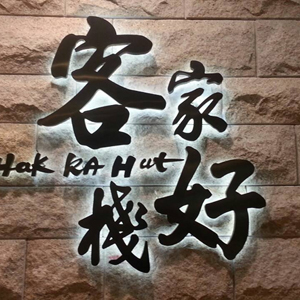 客家
Hak KA Hut
棧好